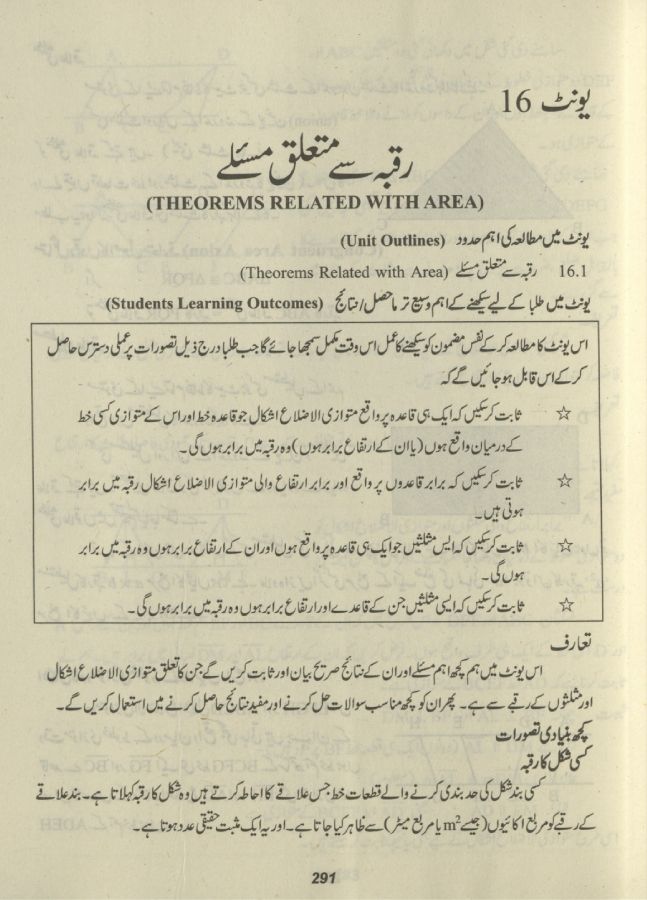 یونٹ 16
رقبہ سے متعلق مسئلے
(THEOREMS RELATED WITH AREA)
یونٹ میں مطالعہ کی اہم حدود (Unit Outlines)
16.1 رقبہ سے متعلق مسئلے (Theorems Related with Area)
یونٹ میں طلبا کے لیے سیکھنے کے اہم وسیع تر ماحصل/نتائج (Students Learning Outcomes)
اس یونٹ کا مطالعہ کر کے نفس مضمون کو سیکھنے کا عمل اس وقت مکمل سمجھا جائے گا جب طلبا درج ذیل تصورات پر عملی دسترس حاصل
کر کے اس قابل ہو جائیں گے کہ
☆ ثابت کر سکیں کہ ایک ہی قاعدہ پر واقع متوازی الاضلاع اشکال جو قاعدہ خط اور اس کے متوازی کسی خط
کے درمیان واقع ہوں (یا ان کے ارتفاع برابر ہوں) وہ رقبہ میں برابر ہوں گی۔
☆ ثابت کر سکیں کہ برابر قاعدوں پر واقع اور برابر ارتفاع والی متوازی الاضلاع اشکال رقبہ میں برابر
ہوتی ہیں۔
☆ ثابت کر سکیں کہ ایسی مثلثیں جو ایک ہی قاعدہ پر واقع ہوں اور ان کے ارتفاع برابر ہوں وہ رقبہ میں برابر
ہوں گی۔
☆ ثابت کر سکیں کہ ایسی مثلثیں جن کے قاعدے اور ارتفاع برابر ہوں وہ رقبہ میں برابر ہوں گی۔
تعارف
اس یونٹ میں ہم کچھ اہم مسئلے اور ان کے نتائج صریح بیان اور ثابت کریں گے جن کا تعلق متوازی الاضلاع اشکال
اور مثلثوں کے رقبے سے ہے۔ پھر ان کو کچھ مناسب سوالات حل کرنے اور مفید نتائج حاصل کرنے میں استعمال کریں گے۔
کچھ بنیادی تصورات
کسی شکل کا رقبہ
کسی بند شکل کی حد بندی کرنے والے قطعات خط جس علاقے کا احاطہ کرتے ہیں وہ شکل کا رقبہ کہلاتا ہے۔ بند علاقے
کے رقبے کو مربع اکائیوں (جیسے m² یا مربع میٹر) سے ظاہر کیا جاتا ہے۔ اور یہ ایک مثبت حقیقی عدد ہوتا ہے۔
291